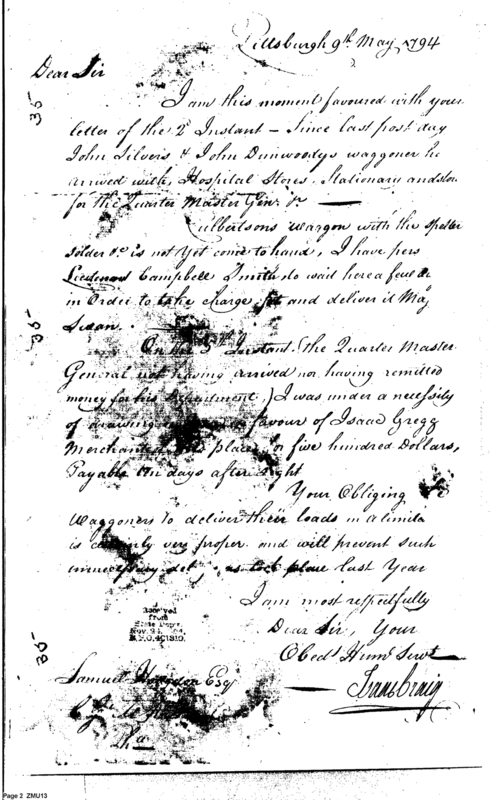 Pittsburgh 9th May 1794
Dear Sir
I am this moment favoured with your
letter of the 2d Instant – Since last post day
John Silvers & John Dunwoodys waggoner he
arrived with Hospital Stores. Stationary and
for the Quarter Master Genl. &c
Culbertsons waggon with the spelter
solder &c is not yet come to hand, I have pers
Lieutenant Campbell Smith to wait here a few da
in Order to take charge of it and deliver it Maj
Swan.
On the 5th Instant (the Quarter Master
General not having arrived nor having remitted
money for his department) I was under a necessity
of drawing favour of Isaac Gregg
Merchant place for five hundred Dollars,
Payable ten days after sight
Your Obliging
Waggoners to deliver their loads in a limite
is certainly very proper and will prevent such
unnecessary delay, as took place last Year
I am most respectfully
Dear Sir, Your
Obedt Humb Servt
Isaac Craig
Samuel Hodgdon Esqr
35
35
35
Received
from
State Dept.
Nov. 21
Page 2 ZMU13